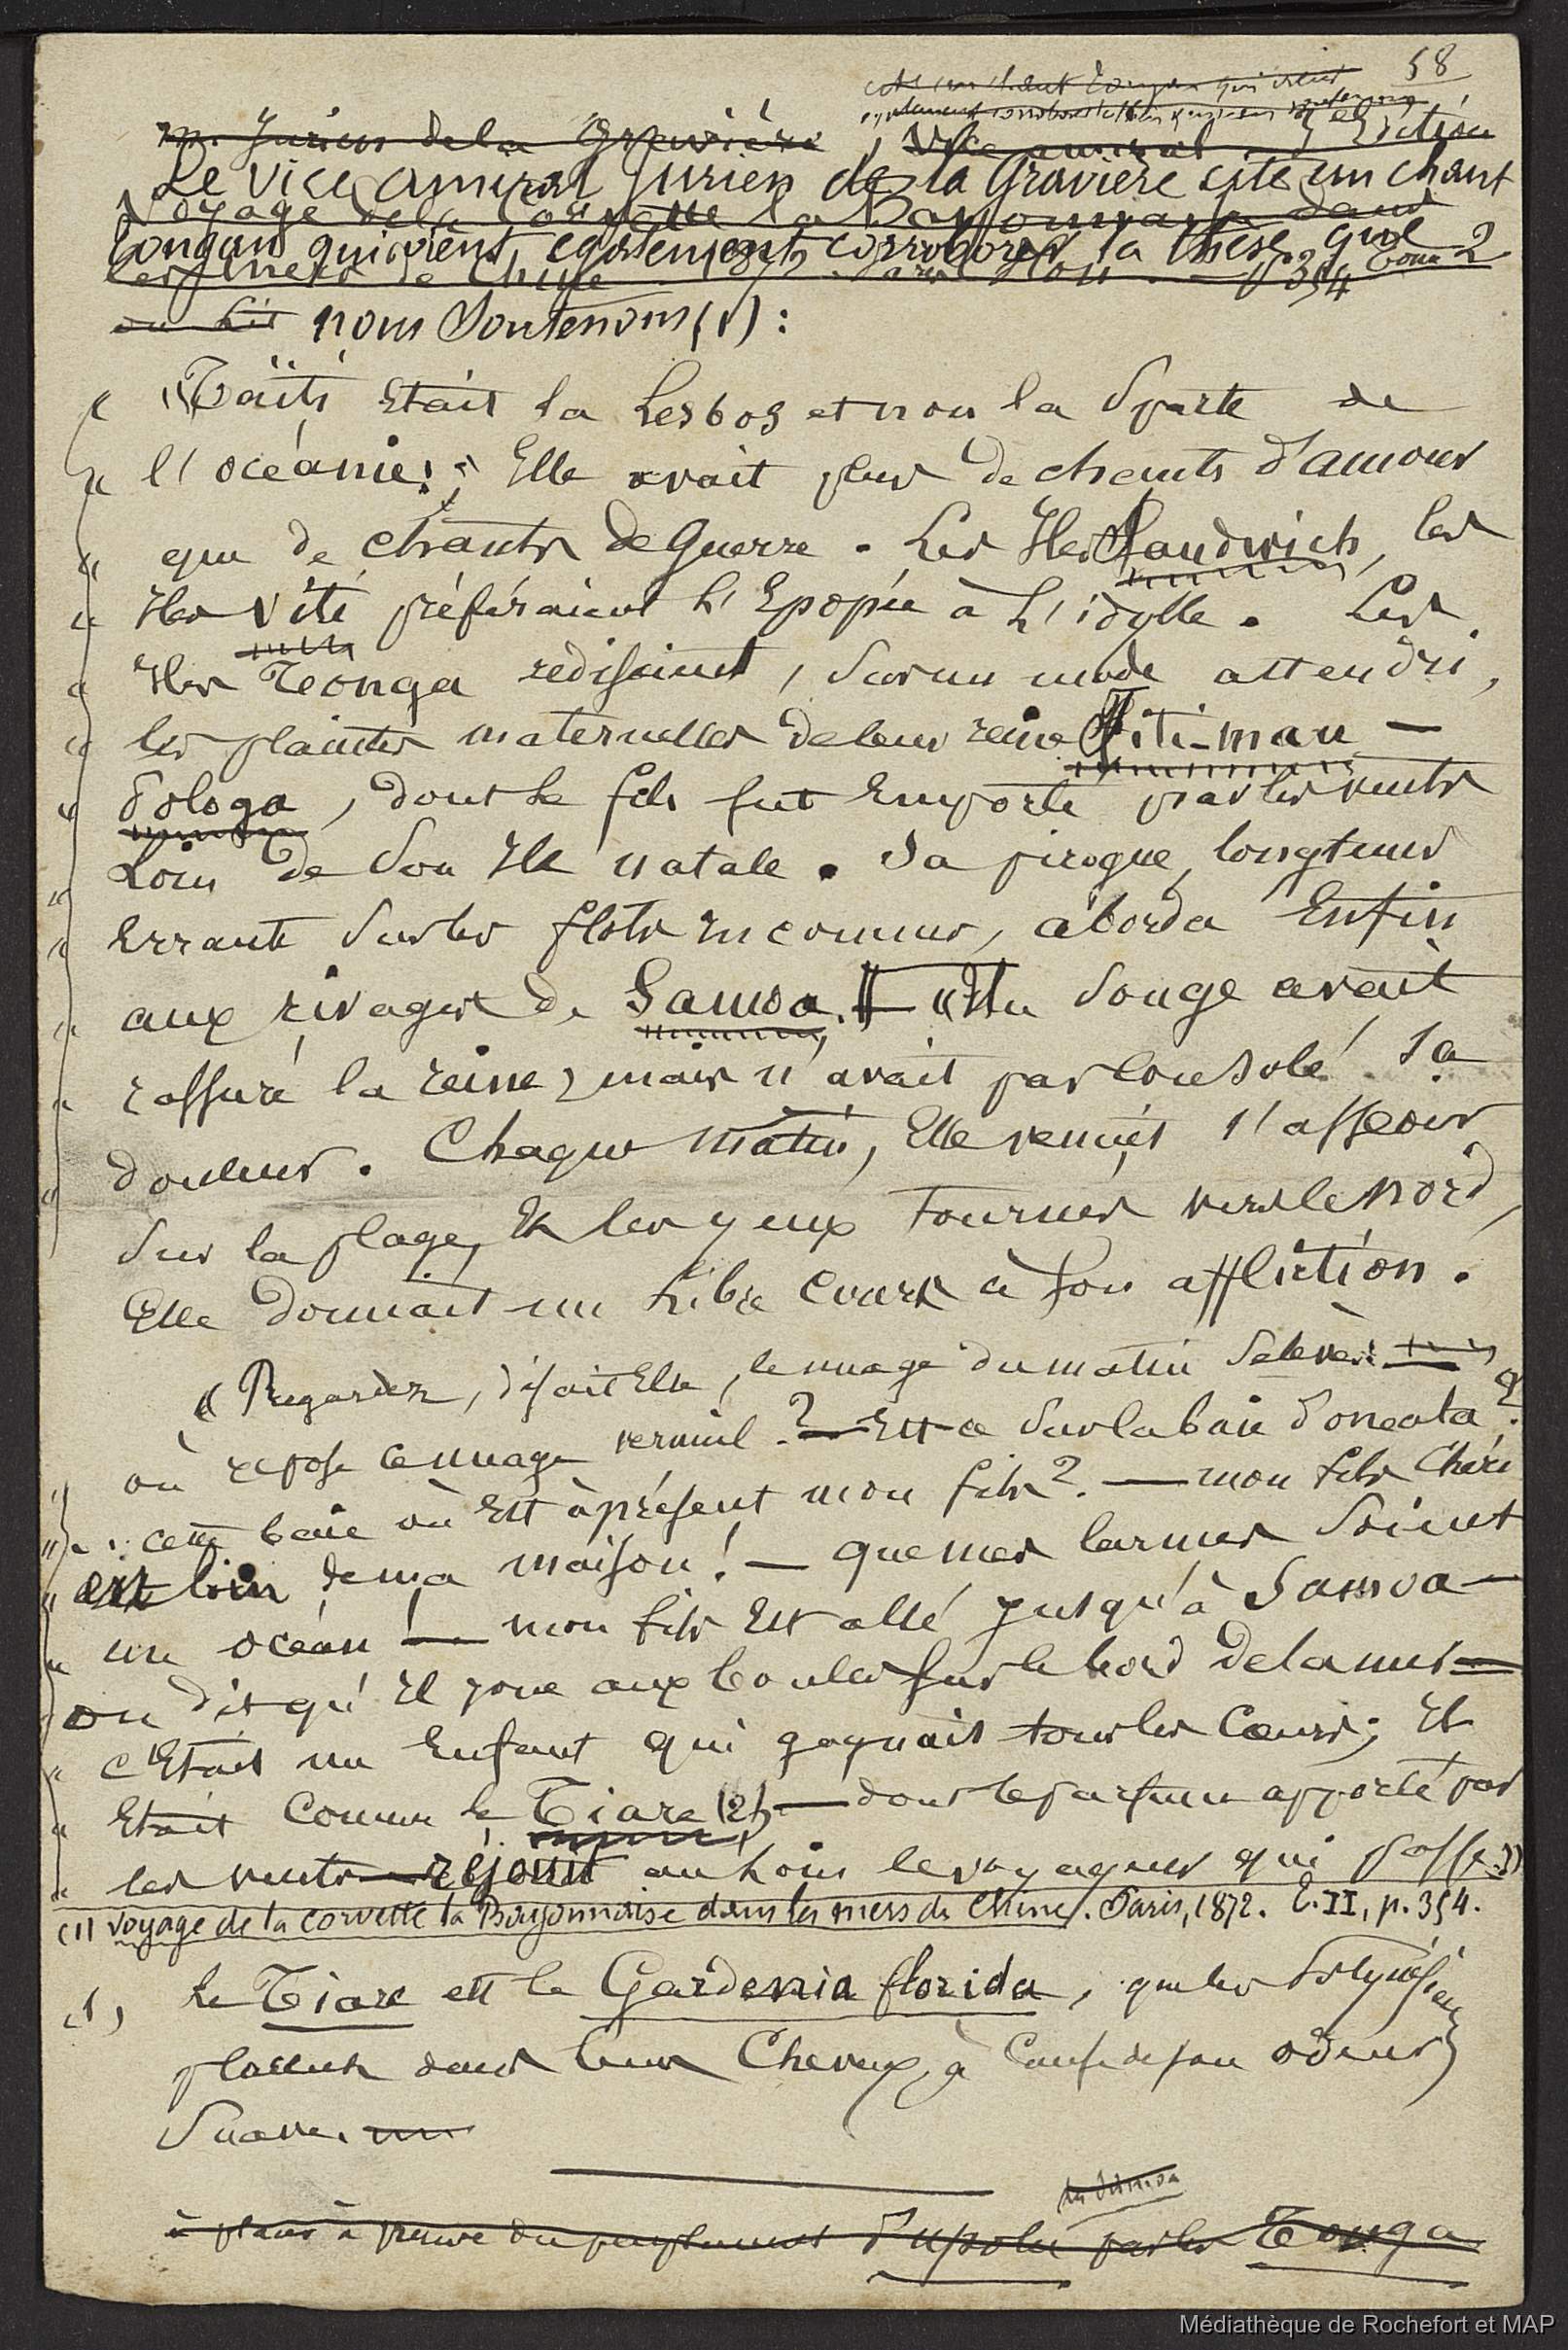 58
cite un chant Tongan qui vient
également corroborer la thèse que nous soutenons
M. Jurien de la Gravière, Vice amiral. Edition
Le Vice Amiral Jurien de la Gravière cite un chant
Voyage de la Corvette la Bayonnaise dans
Tongan qui vient également corroborer la thèse que
les mers de Chine p. 354 Tome 2
nous soutenons (1) :
« Taïti était la Lesbos et non la Sparte de
« l'océanie; Elle avait plus de chants d'amour
« que de chants de Guerre. Les Iles Sandwich, les
« Iles Viti préféraient l'Epopée à l'idylle. Les
« Iles Tonga redisaient, sur un mode attendri,
« les plaintes maternelles de leur reine Fiti-mau-
« Pologa, dont le fils fut Emporté par les vents
« Loin de son Ile natale. Sa pirogue, longtemps
« Errante sur les flots inconnus, aborda Enfin
« aux rivages de Samoa. « Un Songe avait
« rassuré la reine, mais n'avait pas consolé sa
« douleur. Chaque matin, Elle venait s'asseoir
sur la plage, Et les yeux tournés vers le nord,
Elle donnait un libre cours à son affliction.
« Regardez, disait Elle, le nuage du matin s'élève:
« où repose ce nuage vermeil ? — Est-ce sur la baie d'oneata ?
« cette baie où Est à présent mon fils ? — mon fils Chéri
« est loin de ma maison ! — que mes larmes soient
« un océan ! — mon fils Est allé jusqu'à Samoa —
« on dit qu'il joue aux boules sur le bord de la mer —
« c'Etait un Enfant qui gagnait tous les Cœurs; Il
« Etait comme le Tiare (2) — dont le parfum apporté par
« les vents — réjouit au loin le voyageur qui passe »
(1) Voyage de la corvette la Bayonnaise dans les mers de Chine. Paris, 1872. t. II, p. 354.
(1) Le Tiare est le Gardenia florida, que les Polynésiens
placent dans leurs Cheveux, à Cause de son odeur
suave.
à placer à preuve du peuplement d'upolu par les Tonga
Médiathèque de Rochefort et MAP